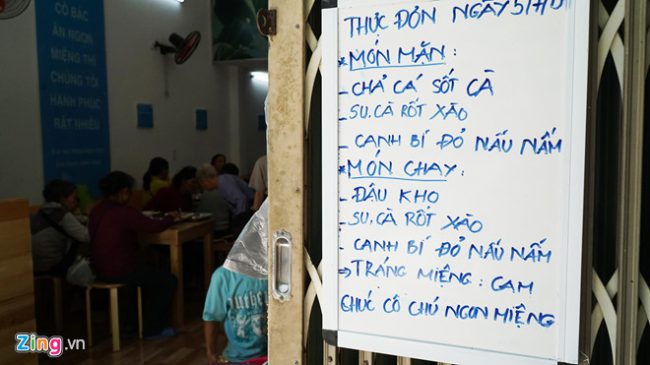 CÔ BÁC
ĂN NGON
MIỆNG THÌ
CHÚNG TÔI
HẠNH PHÚC
RẤT NHIỀU
THỰC ĐƠN NGÀY 5/
* MÓN MẶN :
- CHẢ CÁ SỐT CÀ
- SU. CÀ RỐT XÀO
- CANH BÍ ĐỎ NẤU NẤM
* MÓN CHAY :
- ĐẬU KHO
- SU. CÀ RỐT XÀO
- CANH BÍ ĐỎ NẤU NẤM
→ TRÁNG MIỆNG : CAM
CHÚC CÔ CHÚ NGON MIỆNG
Zing.vn